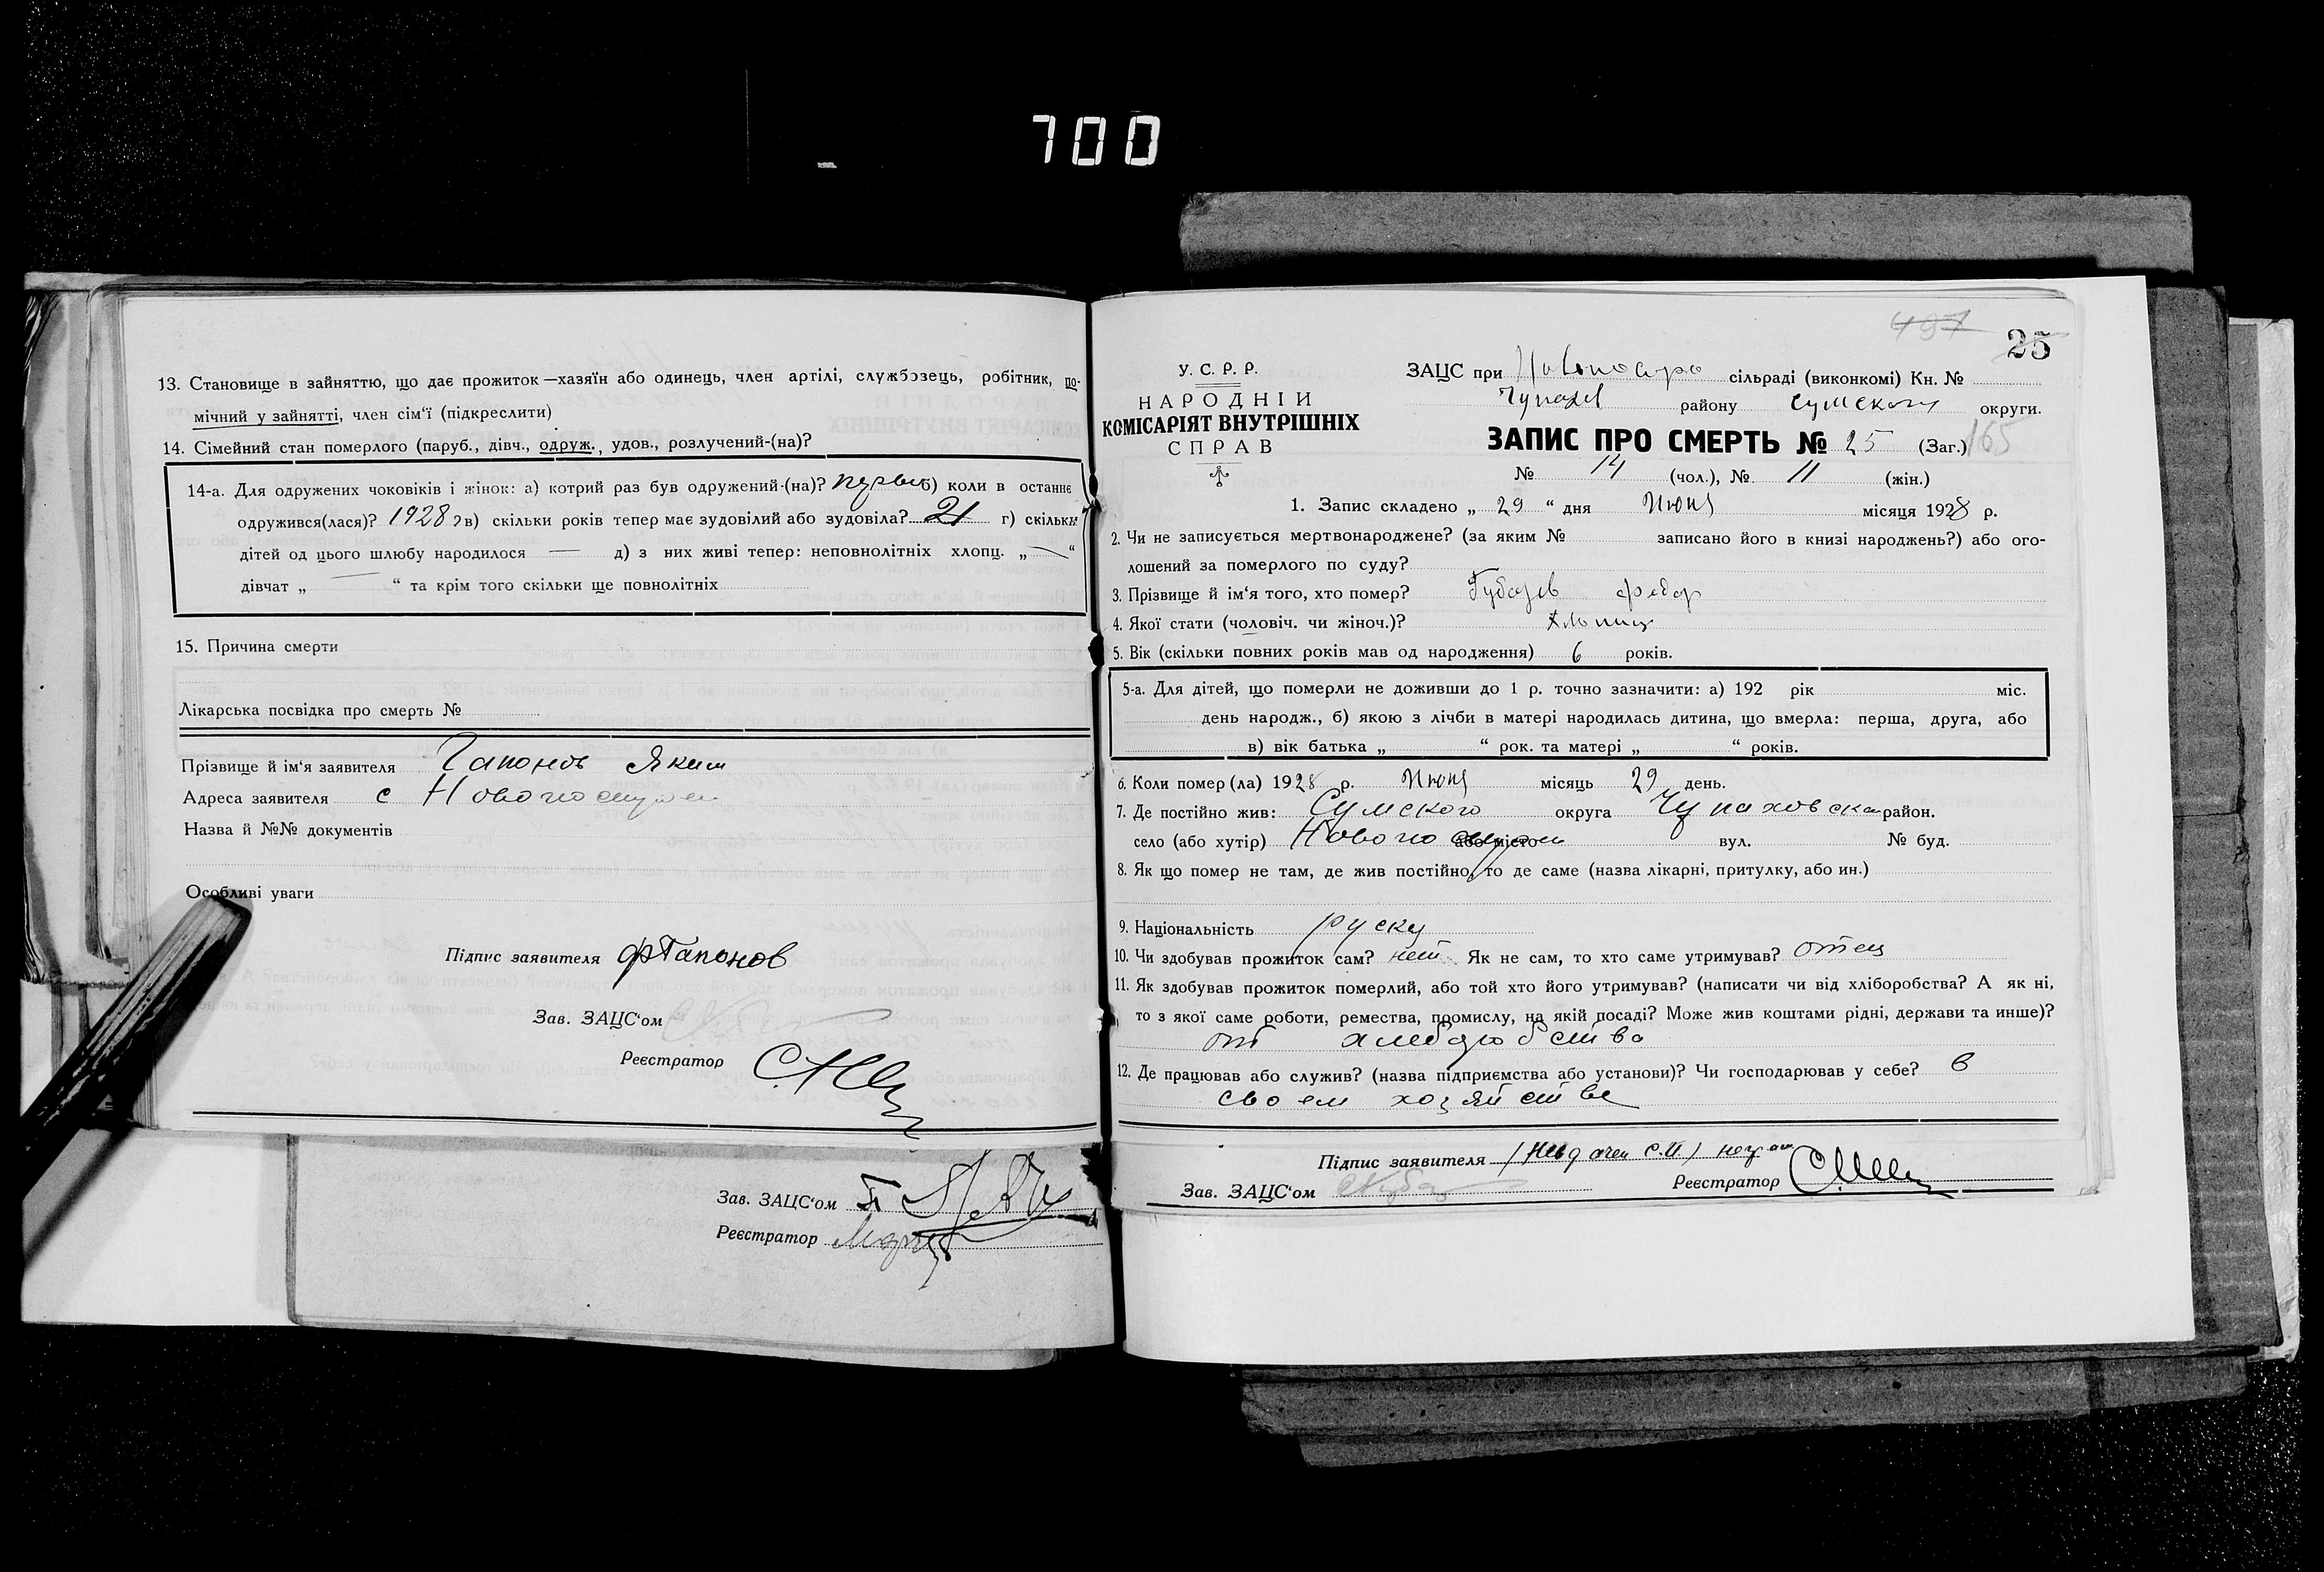 700
13. Становище в зайняттю, що дає прожиток—хазяїн або одинець, член артілі, службовець, робітник, по-
мічний у зайнятті, член сім'ї (підкреслити)
14. Сімейний стан померлого (паруб., дівч., одруж., удов., розлучений-(на)?
14-а. Для одружених чоковіків і жінок: а) котрий раз був одружений-(на)? первый б) коли в останнє
одружився(лася)? 1928 г в) скільки років тепер має зудовілий або зудовіла? 21 г) скільки
дітей од цього шлюбу народилося — д) з них живі тепер: неповнолітніх хлопц. „—“
дівчат „—“ та крім того скільки ще повнолітніх
15. Причина смерти
Лікарська посвідка про смерть №
Прізвище й ім'я заявителя Гапонов Яким
Адреса заявителя с
Назва й №№ документів
Особливі уваги
Підпис заявителя Гапонов
Зав. ЗАЦС'ом
Реєстратор
Зав. ЗАЦС'ом
Реєстратор
497
25
У. С. Р. Р.
НАРОДНІЙ
КОМІСАРІЯТ ВНУТРІШНІХ
СПРАВ
ЗАЦС при сільраді (виконкомі) Кн. №
Чупахов району Сумского округи.
ЗАПИС ПРО СМЕРТЬ № 25 (Заг.) 165
№ 14 (чол.), № 11 (жін.)
1. Запис складено „ 29 “ дня Июня місяця 1928 р.
2. Чи не записується мертвонароджене? (за яким № записано його в книзі народжень?) або ого-
лошений за померлого по суду?
3. Прізвище й ім'я того, хто помер? Губарев Федор
4. Якої стати (чоловіч. чи жіноч.)?
5. Вік (скільки повних років мав од народження) 6 років.
5-а. Для дітей, що померли не доживши до 1 р. точно зазначити: а) 192 рік міс.
день народж., б) якою з лічби в матері народилась дитина, що вмерла: перша, друга, або
в) вік батька „ “ рок. та матері „ “ років.
6. Коли помер (ла) 1928 р. Июня місяць 29 день.
7. Де постійно жив: Сумского округа Чупаховска район.
село (або хутір) або місто вул. № буд.
8. Як що помер не там, де жив постійно, то де саме (назва лікарні, притулку, або ин.)
9. Національність руску
10. Чи здобував прожиток сам? нет Як не сам, то хто саме утримував? отец
11. Як здобував прожиток померлий, або той хто його утримував? (написати чи від хліборобства? А як ні,
то з якої саме роботи, ремества, промислу, на якій посаді? Може жив коштами рідні, держави та инше)?
от хлебаробства
12. Де працював або служив? (назва підприємства або установи)? Чи господарював у себе? в
своем хозяйстве
Підпис заявителя
Зав. ЗАЦС'ом Реєстратор